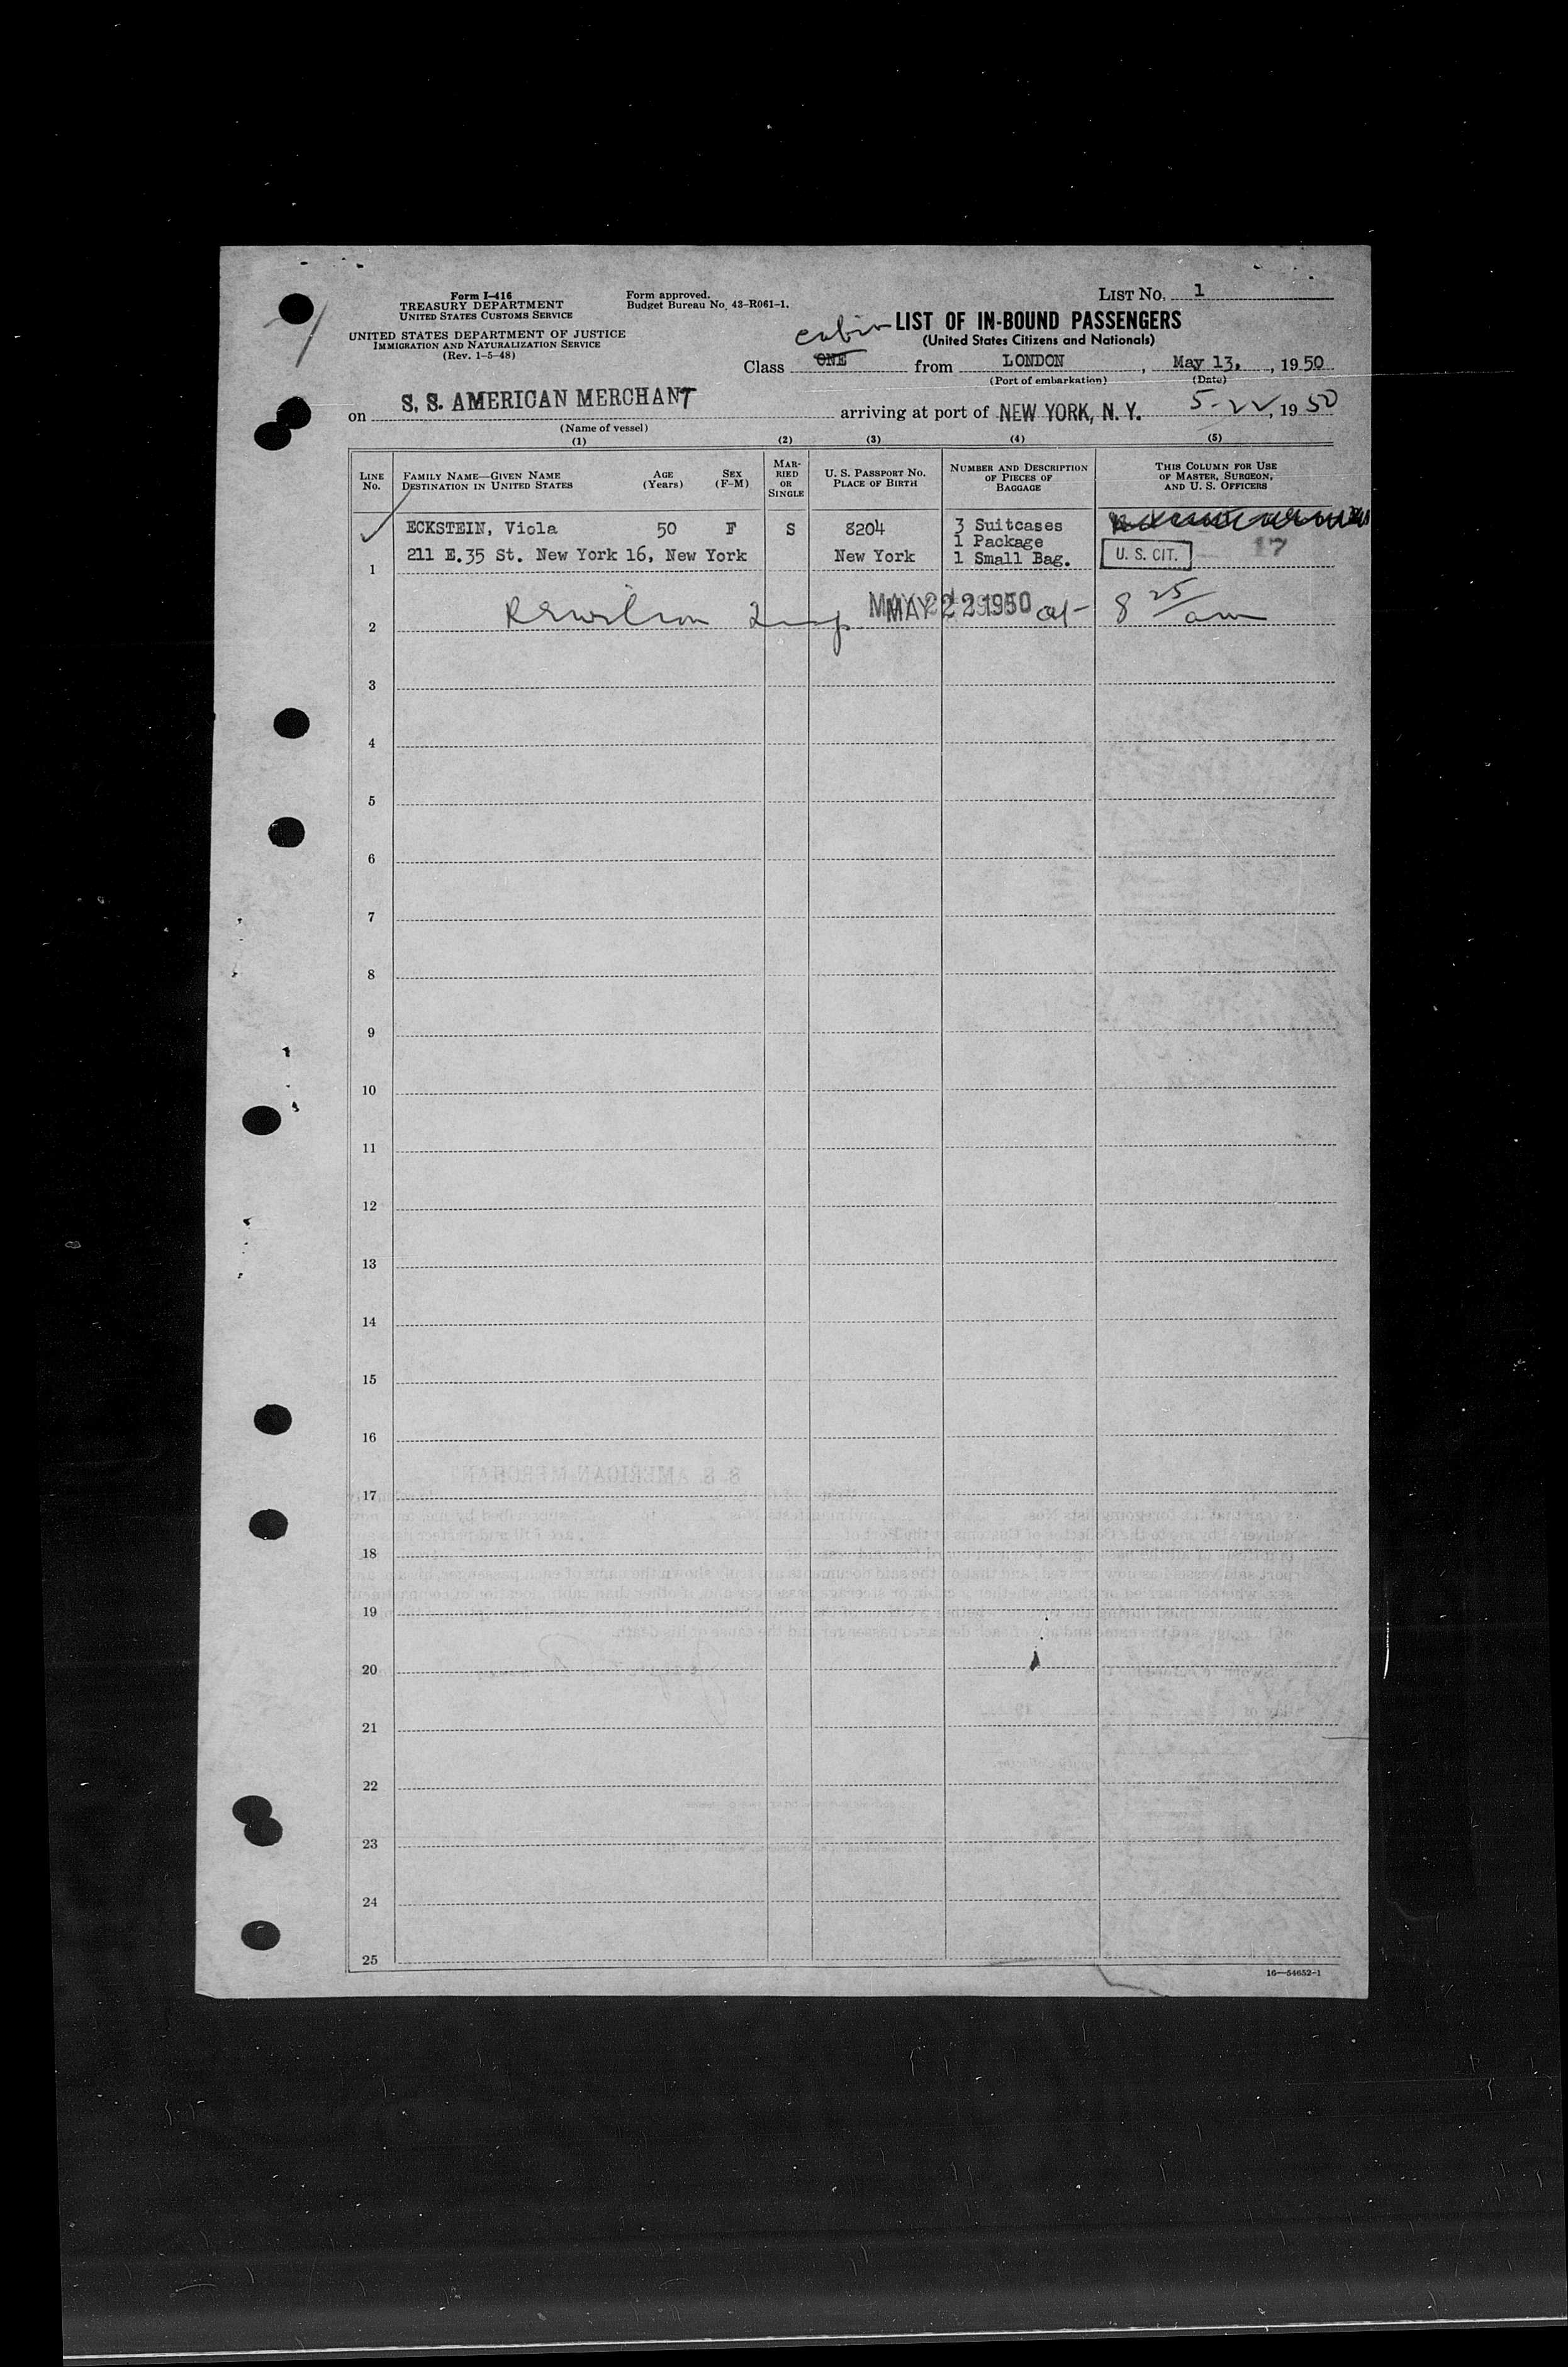 LIST NO. 1
Form I-416
TREASURY DEPARTMENT
UNITED STATES CUSTOMS SERVICE
Form approved.
Budget Bureau No. 43-R061-1.
UNITED STATES DEPARTMENT OF JUSTICE
IMMIGRATION AND NATURALIZATION SERVICE
(Rev. 1-5-48)
LIST OF IN-BOUND PASSENGERS
(United States Citizens and Nationals)
cabin
Class ONE from LONDON, May 13, 1950
(Port of embarkation) (Date)
on S. S. AMERICAN MERCHANT arriving at port of NEW YORK, N. Y. 5-22, 1950
(Name of vessel)
(1) (2) (3) (4) (5)
LINE No. FAMILY NAME—GIVEN NAME DESTINATION IN UNITED STATES AGE (Years) SEX (F-M) MARRIED OR SINGLE U. S. PASSPORT NO. PLACE OF BIRTH NUMBER AND DESCRIPTION OF PIECES OF BAGGAGE THIS COLUMN FOR USE OF MASTER, SURGEON, AND U. S. OFFICERS
ECKSTEIN, Viola 50 F S 8204 3 Suitcases
1 Package
211 E.35 St. New York 16, New York New York 1 Small Bag. U. S. CIT. 17
1
MAY 22 1950 at 8 25 am
2
3
4
5
6
7
8
9
10
11
12
13
14
15
16
17
18
19
20
21
22
23
24
25
16—54652-1